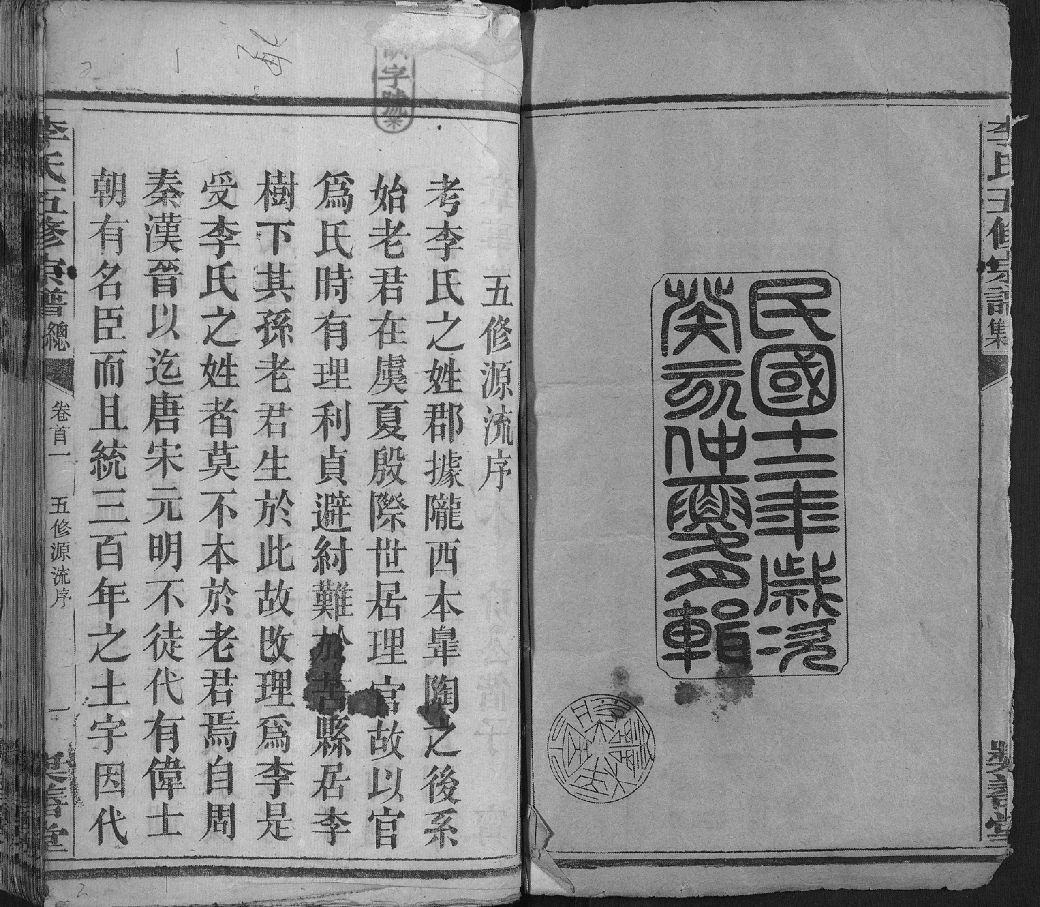 李氏五修宗譜集
奬善堂
民國十二年歲次
癸亥仲夏月輯
字號
五修源流序
考李氏之姓郡據隴西本皐陶之後系
始老君在虞夏殷際世居理官故以官
爲氏時有理利貞避紂難於苦縣居李
樹下其孫老君生於此故改理爲李是
受李氏之姓者莫不本於老君焉自周
秦漢晉以迄唐宋元明不徒代有偉士
朝有名臣而且統三百年之土宇因代
李氏五修宗譜總
卷首一
五修源流序
一
奬善堂